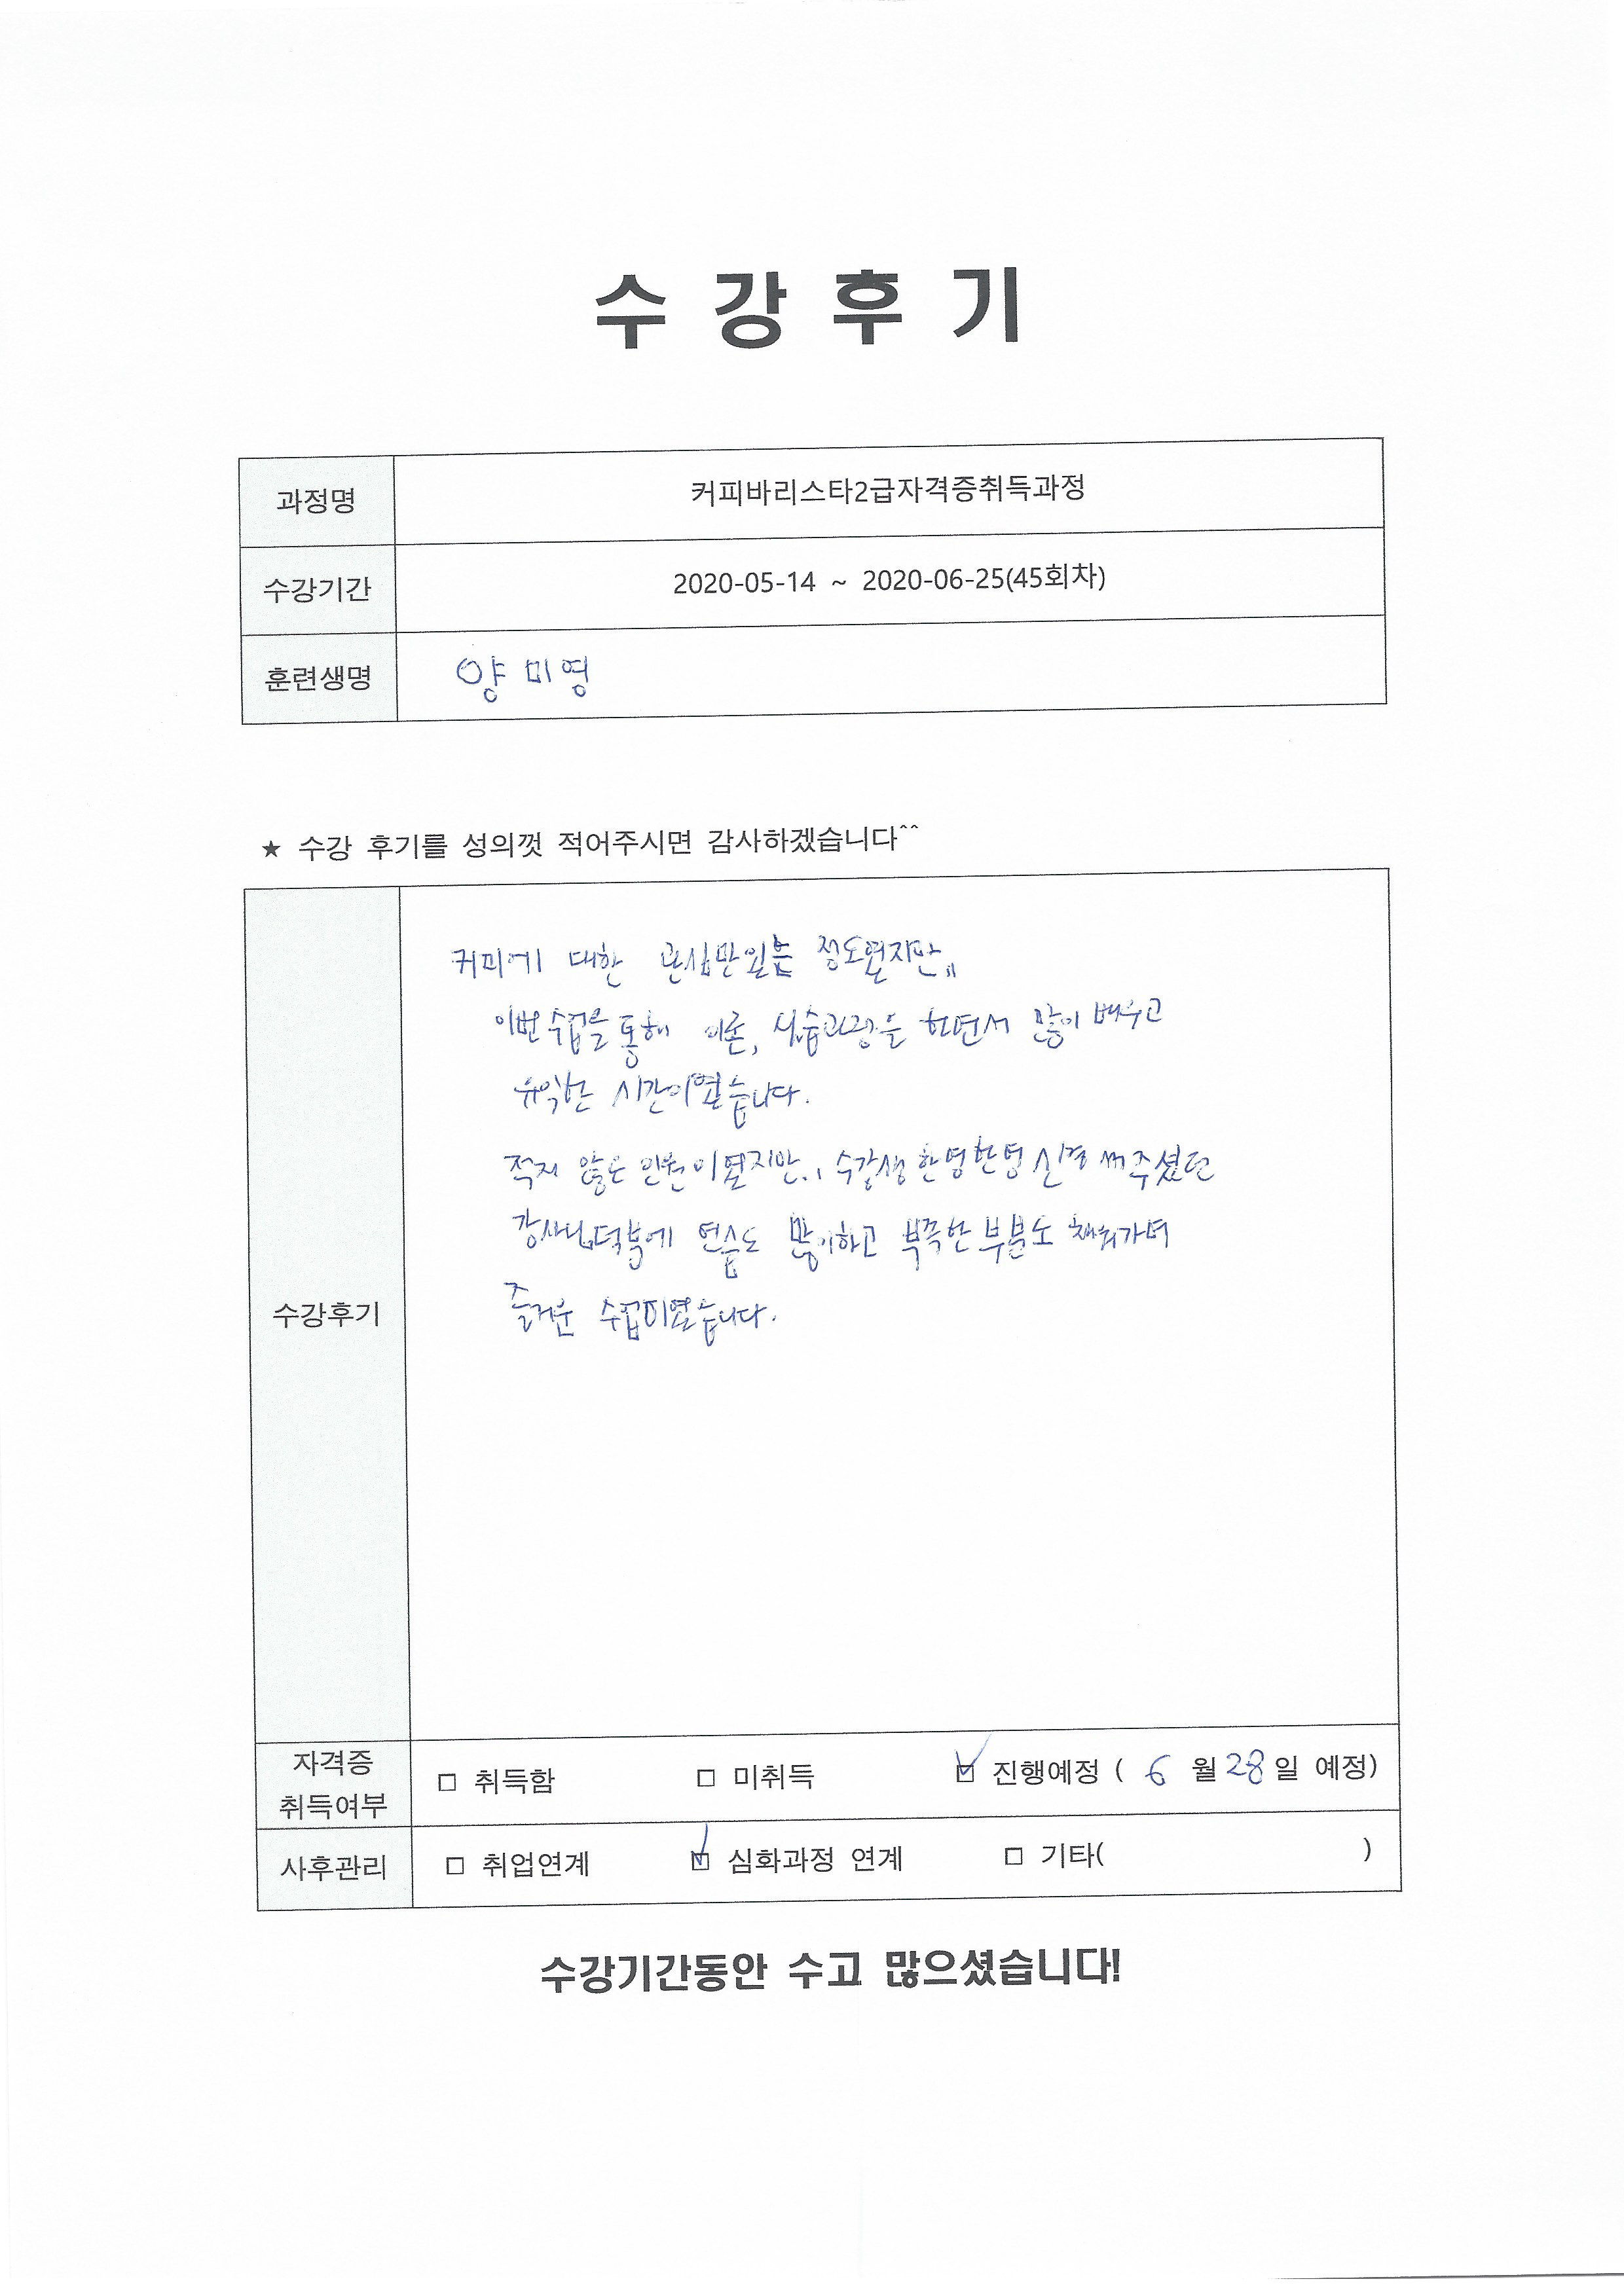 수 강 후 기
과정명 커피바리스타2급자격증취득과정
수강기간 2020-05-14 ~ 2020-06-25(45회차)
훈련생명 양 미 영
★ 수강 후기를 성의껏 적어주시면 감사하겠습니다^^
커피에 대한 관심만있는 정도였지만,,
이번수업을 통해 이론, 실습과정을 하면서 많이 배우고
유익한 시간이였습니다.
적지 않은 인원이였지만.. 수강생 한명한명 신경 써주셨던
강사님덕분에 연습도 많이하고 부족한 부분도 채워가며
즐거운 수업이였습니다.
수강후기
자격증
취득여부 □ 취득함 □ 미취득 ☑ 진행예정 ( 6 월 28 일 예정)
사후관리 □ 취업연계 ☑ 심화과정 연계 □ 기타( )
수강기간동안 수고 많으셨습니다!